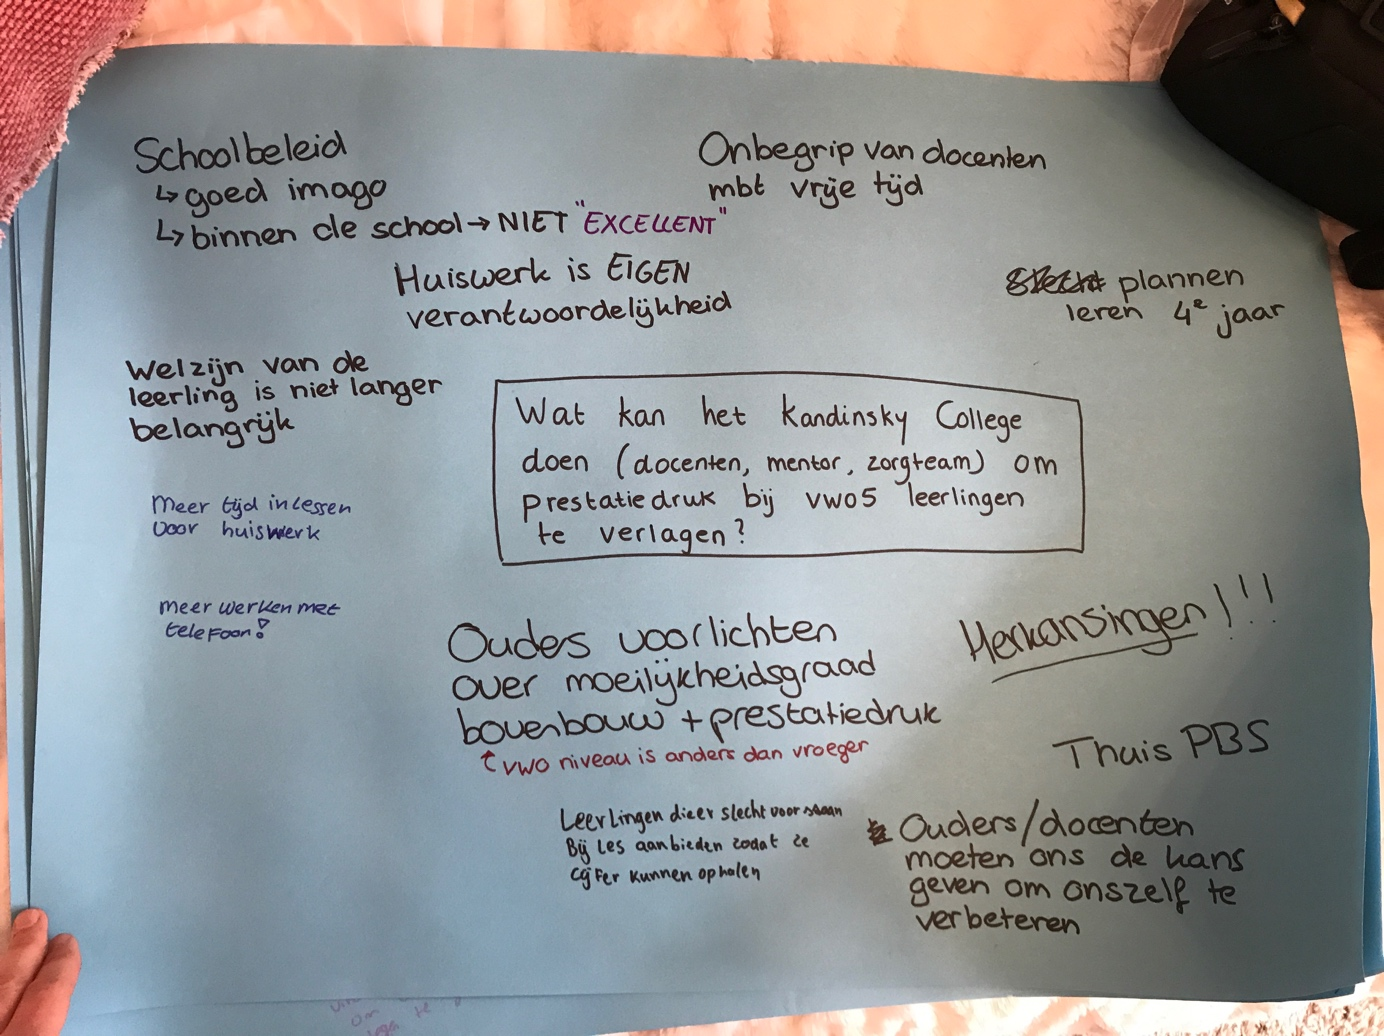 Schoolbeleid
↳ goed imago
↳ binnen de school → NIET "EXCELLENT"
Onbegrip van docenten
mbt vrije tijd
Huiswerk is EIGEN
verantwoordelijkheid
plannen
leren 4e jaar
Welzijn van de
leerling is niet langer
belangrijk
Wat kan het Kandinsky College
doen (docenten, mentor, zorgteam) om
prestatiedruk bij vwo5 leerlingen
te verlagen?
Meer tijd in lessen
voor huiswerk
Meer werken met
telefoon!
Ouders voorlichten
over moeilijkheidsgraad
bovenbouw + prestatiedruk
↑ VWO niveau is anders dan vroeger
Herkansingen!!!
Thuis PBS
Leerlingen die er slecht voor staan
Bij les aanbieden zodat ze
cijfer kunnen ophalen
Ouders/docenten
moeten ons de kans
geven om onszelf te
verbeteren